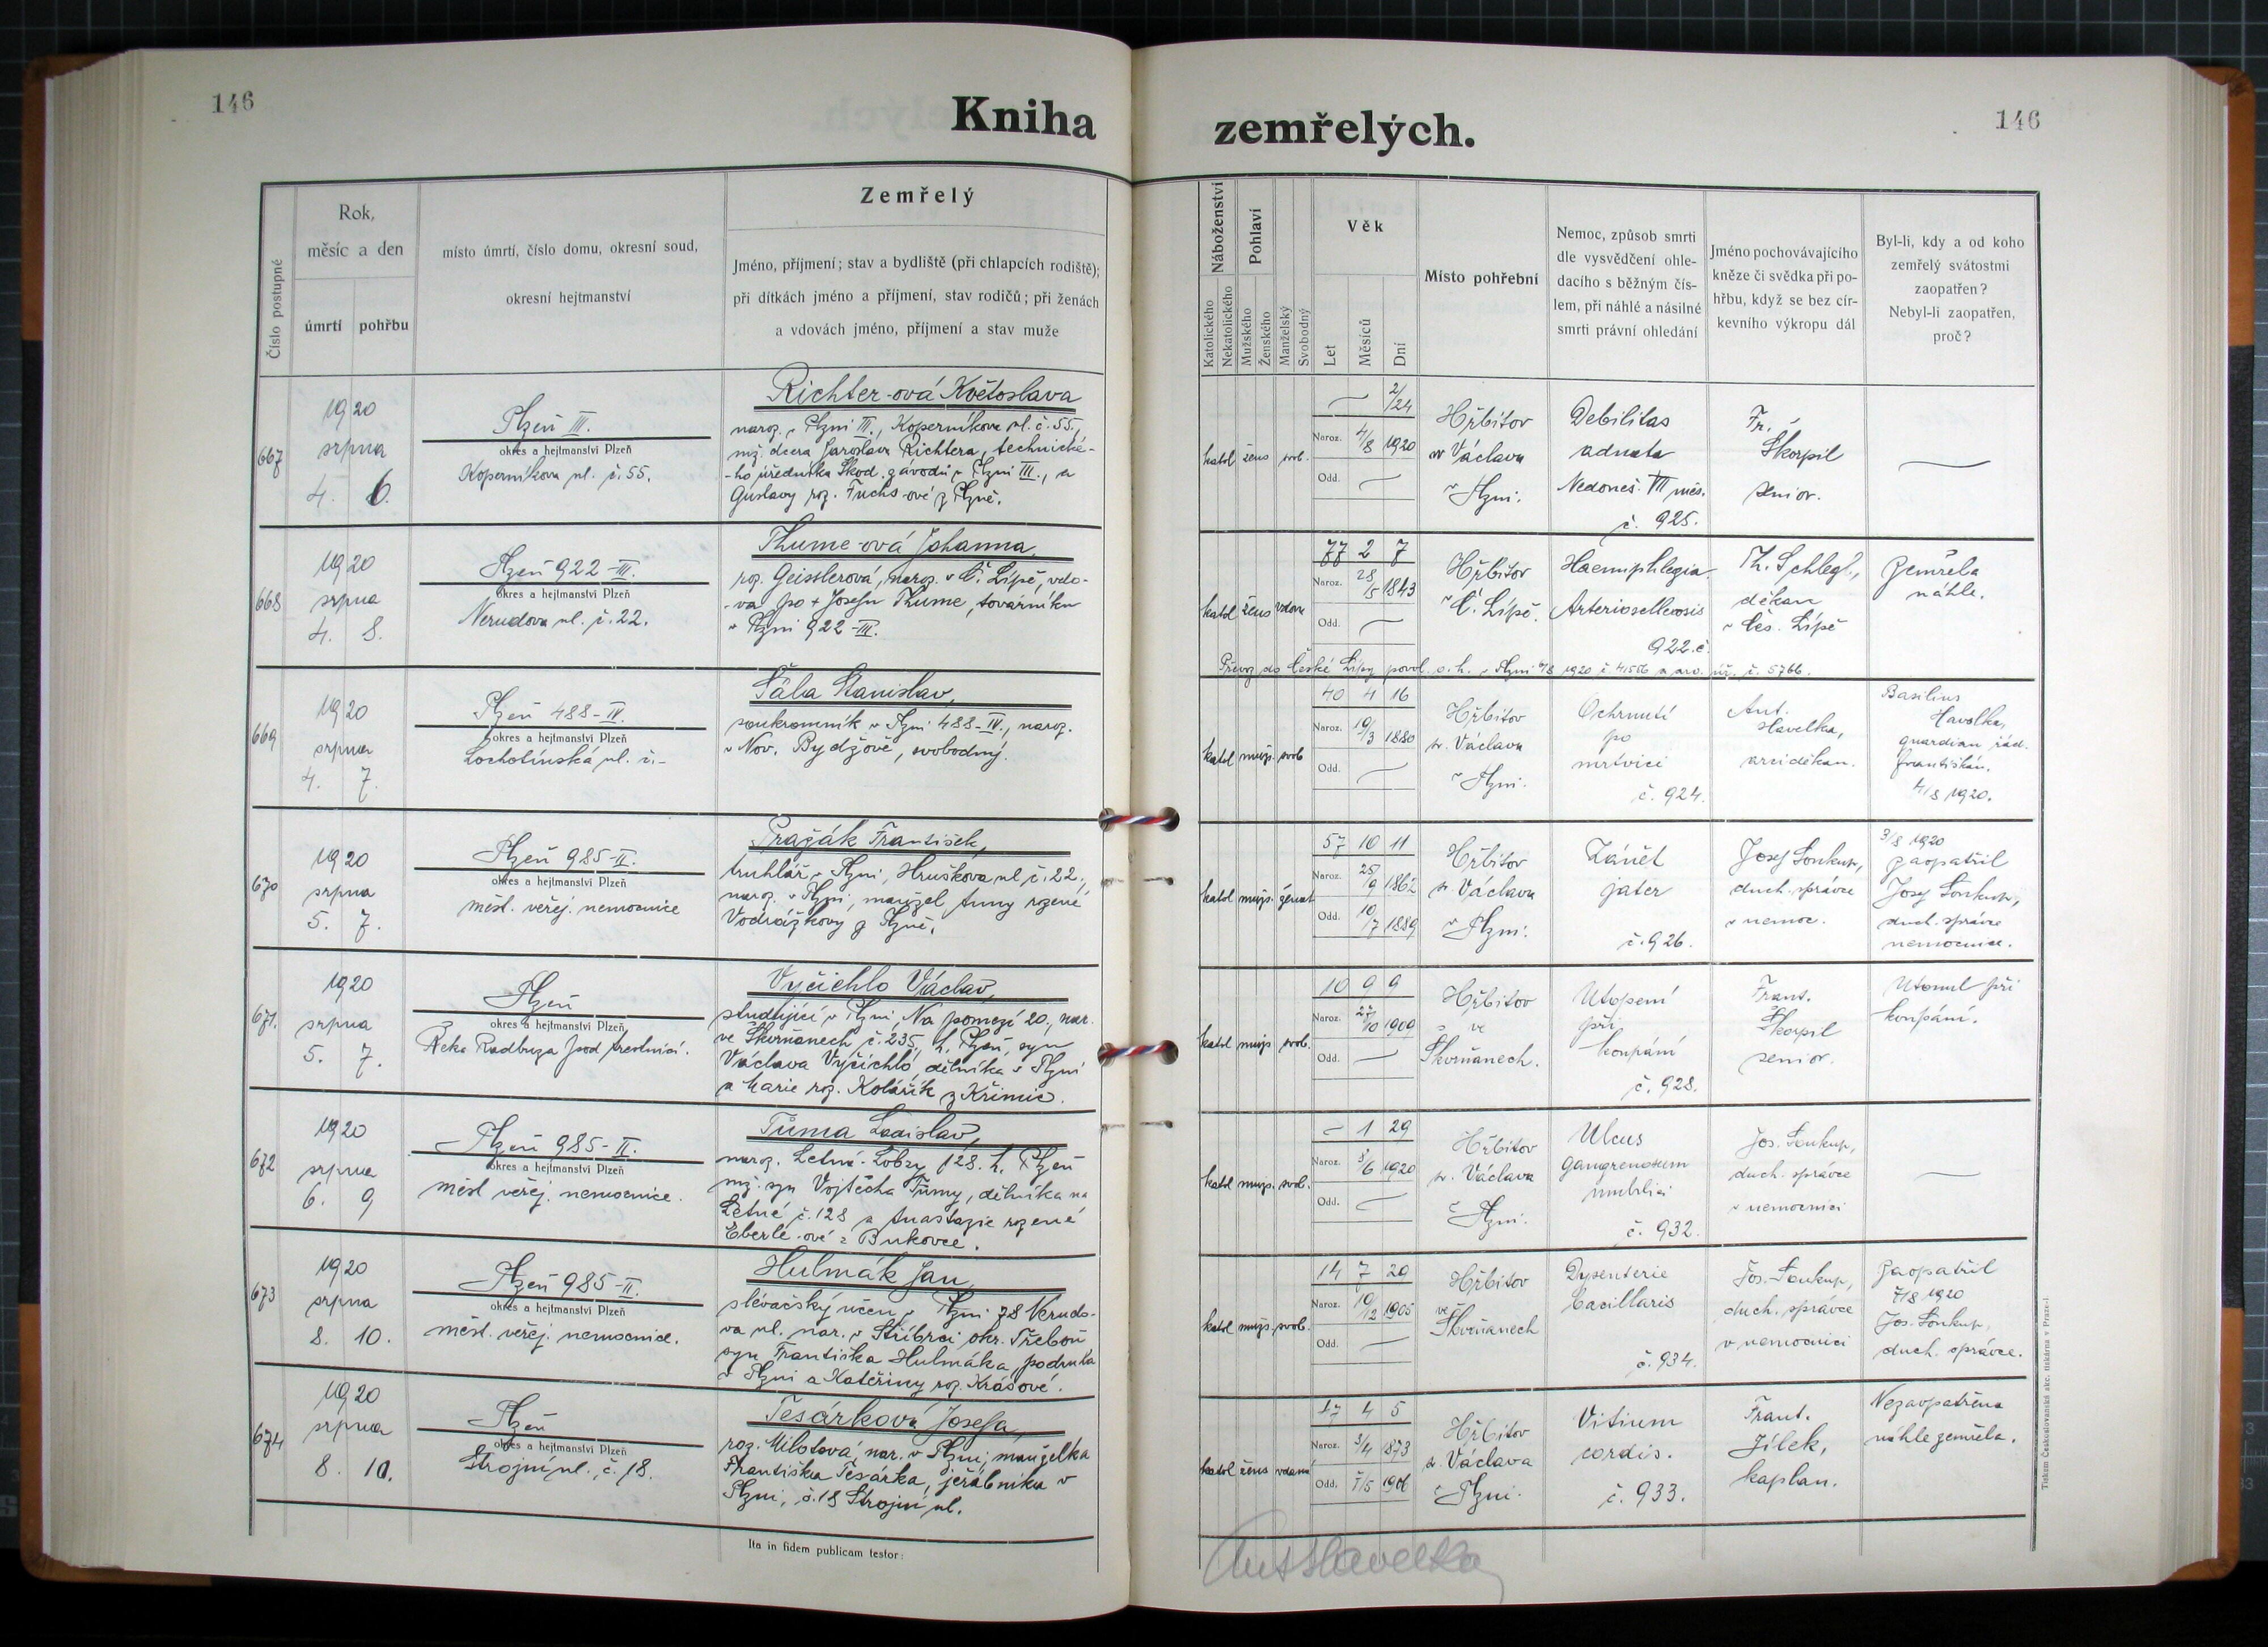 146
Kniha zemřelých.
146
Číslo postupné
Rok,
měsíc a den
úmrtí
pohřbu
místo úmrtí, číslo domu, okresní soud,
okresní hejtmanství
Zemřelý
Jméno, příjmení; stav a bydliště (při chlapcích rodiště);
při dítkách jméno a příjmení, stav rodičů; při ženách
a vdovách jméno, příjmení a stav muže
Náboženství
Katolického
Nekatolického
Pohlaví
Mužského
Ženského
Manželský
Svobodný
Věk
Let
Měsíců
Dní
Místo pohřební
Nemoc, způsob smrti
dle vysvědčení ohle-
dacího s běžným čís-
lem, při náhlé a násilné
smrti právní ohledání
Jméno pochovávajícího
kněze či svědka při po-
hřbu, když se bez cír-
kevního výkropu dál
Byl-li, kdy a od koho
zemřelý svátostmi
zaopatřen?
Nebyl-li zaopatřen,
proč?
667
1920
srpna
4. 6.
Plzeň III.
okres a hejtmanství Plzeň
Koperníkova ul. č. 55.
Richter-ová Květoslava
naroz. v Plzni III., Koperníkova ul. č. 55.,
mž. dcera Jaroslava Richtera, technické-
-ho úředníka Škod. závodů v Plzni III., a
Gustavy roz. Fuchs-ové z Plzně.
katol žens svob.
2/24
Naroz. 4/8 1920
Odd.
Hřbitov
sv Václava
v Plzni.
Debilitas
adnata
Nedoneš. VII měs.
č. 925.
Fr.
Škorpil
senior.
668
1920
srpna
4. 8.
Plzeň 922-III.
okres a hejtmanství Plzeň
Nerudova ul. č. 22.
Thume-ová Johanna,
roz. Geisslerová, naroz. v Č. Lípě, vdo-
-va po + Josefu Thume, továrníku
v Plzni 922-III.
katol žens vdova
77 2 7
Naroz. 28/5 1843
Odd.
Hřbitov
v Č. Lípě.
Haemiphlegia.
Arteriosclerosis
922.č.
Th. Schlegl.,
děkan
v Čes. Lípě
Zemřela
náhle.
Převoz do České Lípy povol. o. h. v Plzni 6/8 1920 č 41556 a arc. úř. č. 5766.
669
1920
srpna
4. 7.
Plzeň 488-IV.
okres a hejtmanství Plzeň
Lochotínská ul. č.-
Šába Stanislav,
soukromník v Plzni 488-IV., naroz.
v Nov. Bydžově, svobodný.
katol mužs. svob
40 4 16
Naroz. 19/3 1880
Odd.
Hřbitov
sv. Václava
v Plzni.
Ochrnutí
po
mrtvici
č. 924.
Ant.
Havelka,
arciděkan.
Basilius
Havelka,
quardian řád.
františkán.
4/8 1920.
670
1920
srpna
5. 7.
Plzeň 985-II.
okres a hejtmanství Plzeň
měst. veřej. nemocnice
Pražák František,
truhlář v Plzni, Hruškova ul č. 22.,
naroz. v Plzni, manžel Anny rozené
Vodrážkovy z Plzně.
katol mužs. ženat
57 10 11
Naroz. 25/9 1862
Odd. 10/7 1889
Hřbitov
sv Václava
v Plzni.
Zánět
jater
č. 926.
Josef Soukup,
duch. správce
v nemoc.
3/8 1920
zaopatřil
Josef Soukup,
duch. správce
nemocnice.
671.
1920
srpna
5. 7.
Plzeň
okres a hejtmanství Plzeň
Řeka Radbuza pod trestnicí.
Vyčichlo Václav,
studující v Plzni, Na pomezí 20., nar.
ve Škvrňanech č. 235, h. Plzeň, syn
Václava Vyčichlo, dělníka v Plzni
a Marie roz. Kolářík z Křimic.
katol mužs svob.
10 9 9
Naroz. 27/10 1909
Odd.
Hřbitov
ve
Škvrňanech.
Utopení
při
koupání
č. 928.
Frant.
Škorpil
senior.
Utonul při
koupání.
672
1920
srpna
6. 9
Plzeň 985-II.
okres a hejtmanství Plzeň
měst veřej. nemocnice.
Tůma Ladislav,
naroz. Letná-Lobzy 128. h. Plzeň
mž. syn Vojtěcha Tůmy, dělníka na
Letné č. 128 a Anastazie rozené
Eberle-ové z Bukovce.
katol mužs. svob.
- 1 29
Naroz. 8/6 1920
Odd.
Hřbitov
sv. Václava
v Plzni.
Ulcus
gangrenosum
umbilici
č. 932.
Jos. Soukup,
duch. správce
v nemocnici
673
1920
srpna
8. 10.
Plzeň 985-II.
okres a hejtmanství Plzeň
měst. veřej. nemocnice.
Hulmák Jan,
slévačský učen v Plzni 78 Nerudo-
va ul. nar. v Stříbrci okr. Třeboň
syn Františka Hulmáka, podruha
v Plzni a Kateřiny roz. Krásové.
katol mužs. svob.
14 7 29
Naroz. 10/12 1905
Odd.
Hřbitov
ve
Škvrňanech
Dysenterie
bacillaris
č. 934.
Jos. Soukup,
duch. správce
v nemocnici
Zaopatřil
7/8 1920
Jos. Soukup,
duch. správce.
674
1920
srpna
8. 10.
Plzeň
okres a hejtmanství Plzeň
Strojní ul. č. 18.
Tesárková Josefa,
roz. Milotová, nar. v Plzni, manželka
Františka Tesárka, jeřábníka v
Plzni, č. 18 Strojní ul.
katol žens vdaná
47 4 5
Naroz. 3/4 1873
Odd. 7/5 1906
Hřbitov
sv. Václava
v Plzni.
Vitium
cordis.
č. 933.
Frant.
Jílek,
kaplan.
Nezaopatřena
náhle zemřela.
Ita in fidem publicam testor:
Ant Havelka
Tiskem Československé akc. tiskárna v Praze-I.